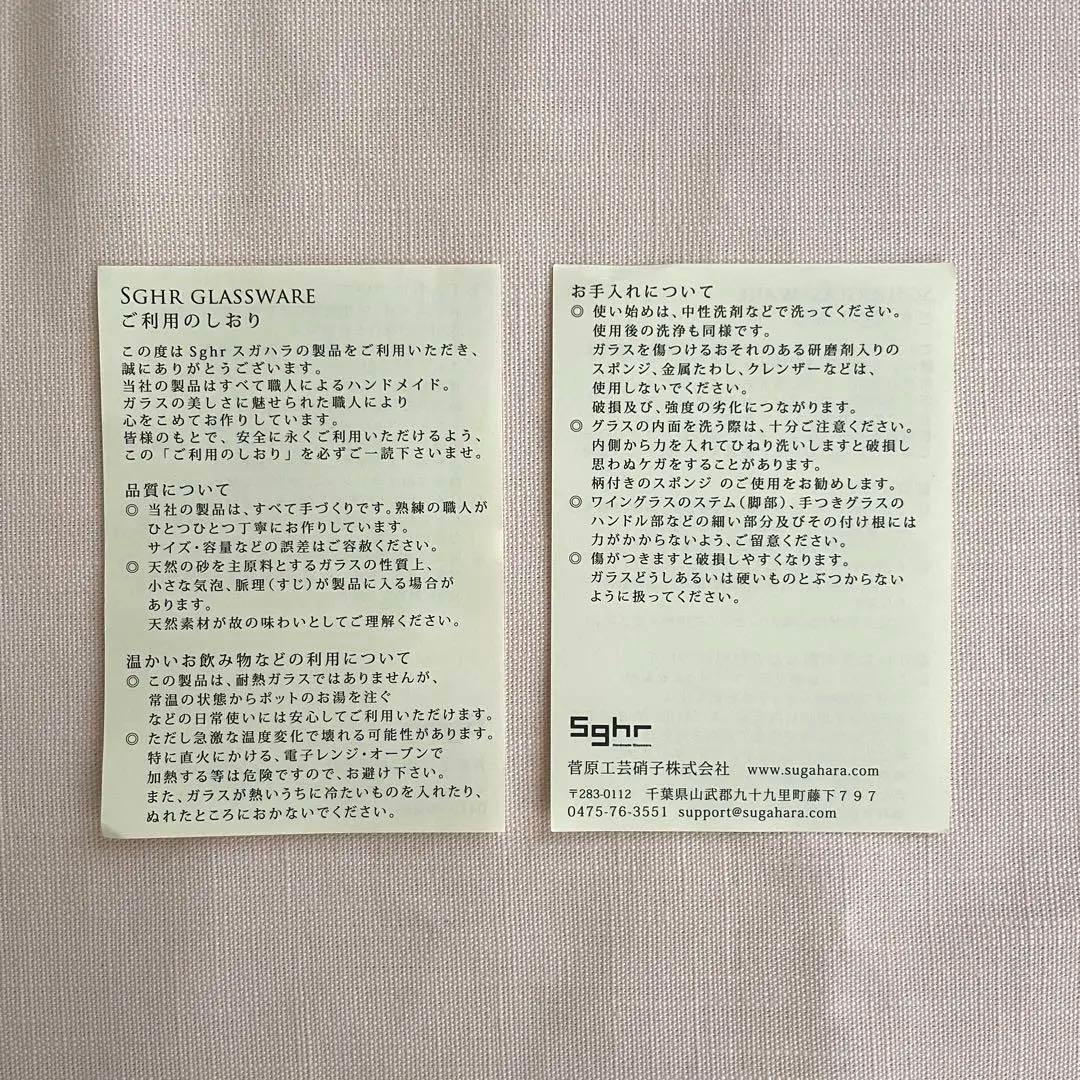 SGHR GLASSWARE
ご利用のしおり
この度は Sghr スガハラの製品をご利用いただき、
誠にありがとうございます。
当社の製品はすべて職人によるハンドメイド。
ガラスの美しさに魅せられた職人により
心をこめてお作りしています。
皆様のもとで、安全に永くご利用いただけるよう、
この「ご利用のしおり」を必ずご一読下さいませ。
品質について
◎ 当社の製品は、すべて手づくりです。熟練の職人が
ひとつひとつ丁寧にお作りしています。
サイズ・容量などの誤差はご容赦ください。
◎ 天然の砂を主原料とするガラスの性質上、
小さな気泡、脈理（すじ）が製品に入る場合が
あります。
天然素材が故の味わいとしてご理解ください。
温かいお飲み物などの利用について
◎ この製品は、耐熱ガラスではありませんが、
常温の状態からポットのお湯を注ぐ
などの日常使いには安心してご利用いただけます。
◎ ただし急激な温度変化で壊れる可能性があります。
特に直火にかける、電子レンジ・オーブンで
加熱する等は危険ですので、お避け下さい。
また、ガラスが熱いうちに冷たいものを入れたり、
ぬれたところにおかないでください。
お手入れについて
◎ 使い始めは、中性洗剤などで洗ってください。
使用後の洗浄も同様です。
ガラスを傷つけるおそれのある研磨剤入りの
スポンジ、金属たわし、クレンザーなどは、
使用しないでください。
破損及び、強度の劣化につながります。
◎ グラスの内面を洗う際は、十分ご注意ください。
内側から力を入れてひねり洗いしますと破損し
思わぬケガをすることがあります。
柄付きのスポンジ のご使用をお勧めします。
◎ ワイングラスのステム（脚部）、手つきグラスの
ハンドル部などの細い部分及びその付け根には
力がかからないよう、ご留意ください。
◎ 傷がつきますと破損しやすくなります。
ガラスどうしあるいは硬いものとぶつからない
ように扱ってください。
Sghr
Handmade Glassware
菅原工芸硝子株式会社 www.sugahara.com
〒283-0112 千葉県山武郡九十九里町藤下７９７
0475-76-3551 support@sugahara.com